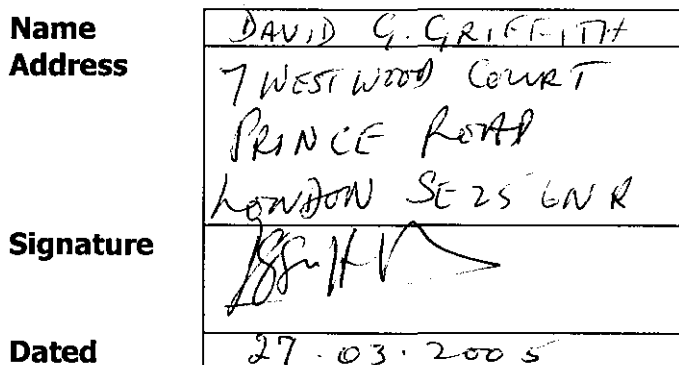 Name DAVID G. GRIFFITH
Address 7 WESTWOOD COURT
PRINCE ROAD
LONDON SE25 6NR
Signature
Dated 27.03.2005